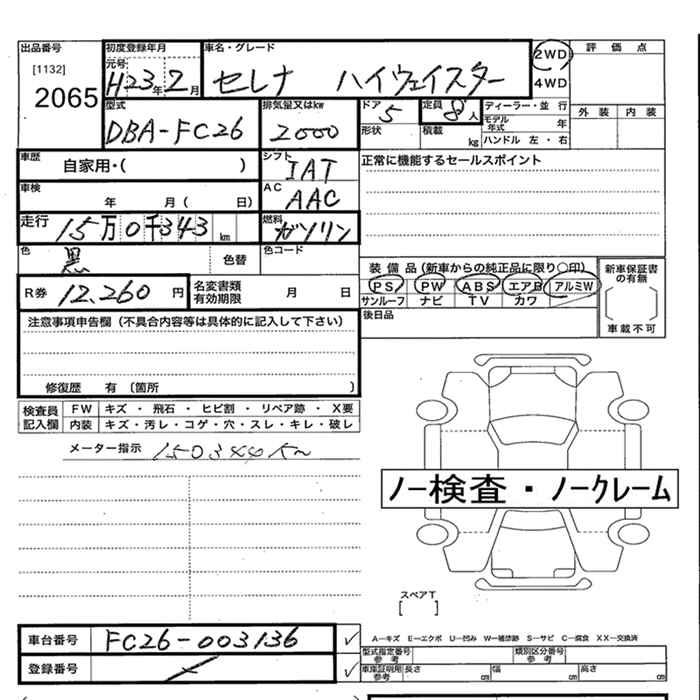 出品番号 初度登録年月 車名・グレード 2WD 評価点
[1132] 元号 H23年2月 セレナ ハイウェイスター 4WD
2065
型式 排気量又はkw ドア 5 定員 8人 ディーラー・並行 外装 内装
DBA-FC26 2000 形状 積載 kg モデル年式 年
ハンドル 左・右
車歴 自家用・( ) シフト IAT 正常に機能するセールスポイント
車検 年 月( 日) AC AAC
走行 15万0千343km 燃料 ガソリン
色 黒 色替 色コード
装備品(新車からの純正品に限り○印) 新車保証書の有無
R券 12,260円 名変書類有効期限 月 日 PS PW ABS エアB アルミW
サンルーフ ナビ TV カワ
注意事項申告欄(不具合内容等は具体的に記入して下さい) 後日品 車載不可
修復歴 有(箇所 )
検査員記入欄 FW キズ・飛石・ヒビ割・リペア跡・X要
内装 キズ・汚レ・コゲ・穴・スレ・キレ・破レ
メーター指示 150344K~
ノー検査・ノークレーム
スペアT
[ ]
車台番号 FC26-003136 ✓ A-キズ E-エクボ U-凹み W-補修跡 S-サビ C-腐食 XX-交換済
型式指定番号 参考 類別区分番号 参考
登録番号 ✓ 車庫証明用 参考 長さ cm 幅 cm 高さ cm